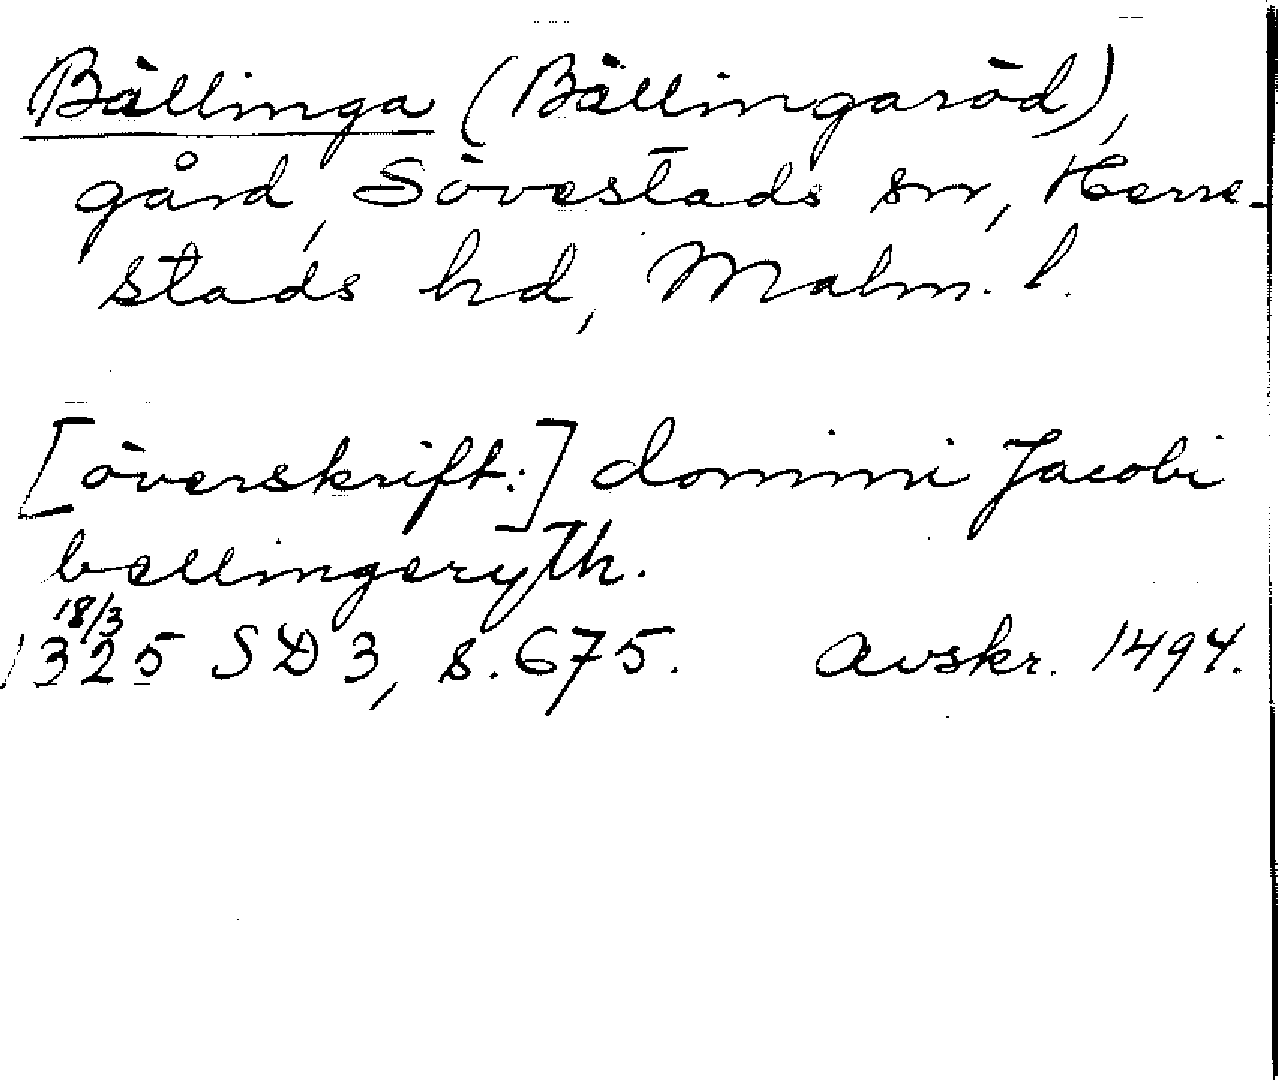 Bällinga (Bällingaröd),
gård, Sövestads sn, Herre-
stads hd, Malm. l.
[överskrift:] domini Jacobi
bellingeryth.
18/3
1325 SD 3, s. 675. Avskr. 1494.